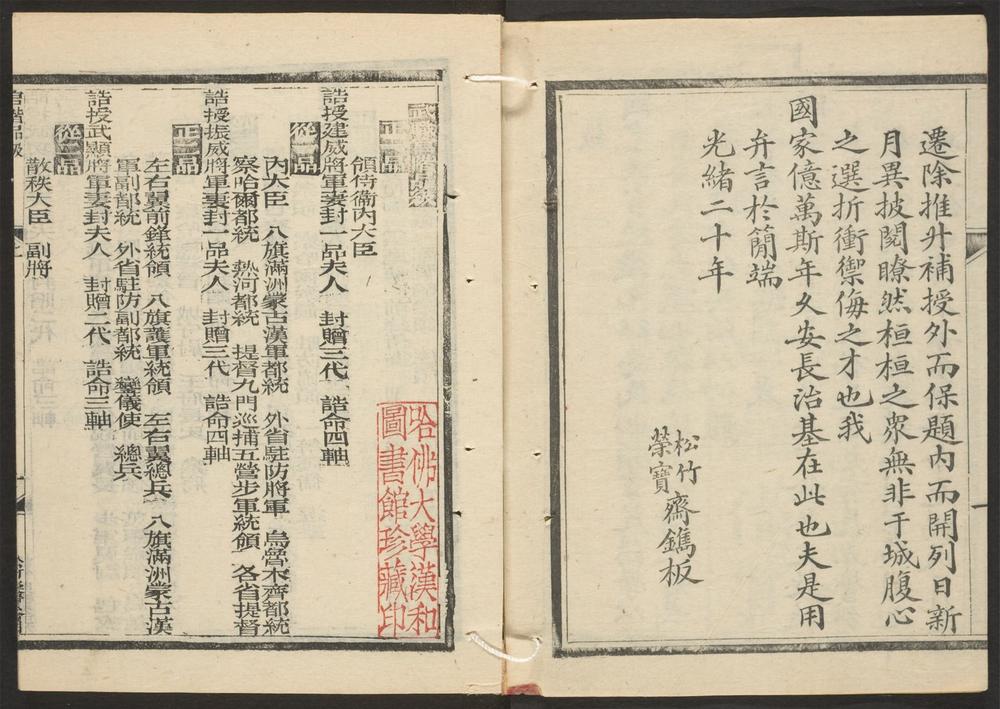 遷除推升補授外而保題內而開列日新
月異披閱瞭然桓桓之眾無非干城腹心
之選折衝禦侮之才也我
國家億萬斯年久安長治基在此也夫是用
弁言於簡端
光緒二十年
松竹
榮寶
齋鐫板
哈佛大學漢和
圖書館珍藏印
正一品
領侍衛內大臣
誥授建威將軍妻封一品夫人 封贈三代 誥命四軸
從一品
內大臣 八旗滿洲蒙古漢軍都統 外省駐防將軍 烏魯木齊都統
察哈爾都統 熱河都統 提督九門巡捕五營步軍統領 各省提督
誥授振威將軍妻封一品夫人 封贈三代 誥命四軸
正二品
左右翼前鋒統領 八旗護軍統領 左右翼總兵 八旗滿洲蒙古漢
軍副都統 外省駐防副都統 鑾儀使 總兵
誥授武顯將軍妻封夫人 封贈二代 誥命三軸
從二品
散秩大臣 副將